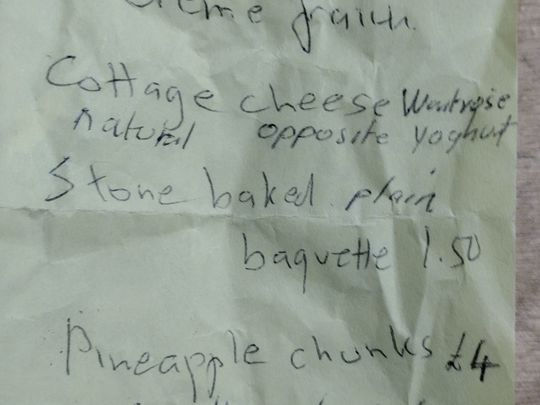 Creme fraich
Cottage cheese Waitrose
natural opposite yoghurt
Stone baked plain
baguette 1.50
Pineapple chunks £4